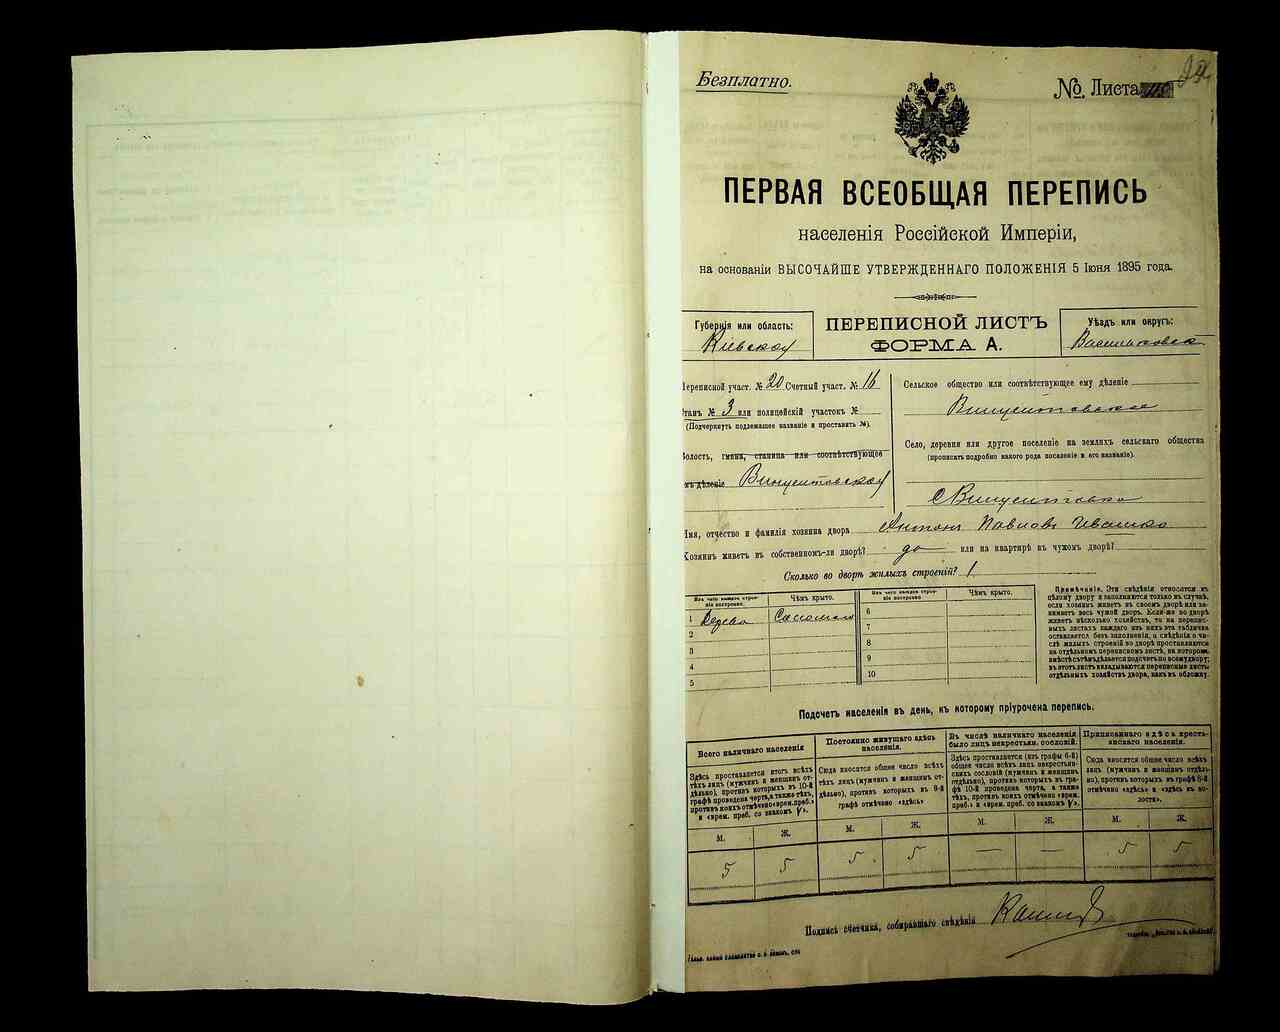 Безплатно.
№. Листа
ПЕРВАЯ ВСЕОБЩАЯ ПЕРЕПИСЬ
населенія Россійской Имперіи,
на основаніи ВЫСОЧАЙШЕ УТВЕРЖДЕННАГО ПОЛОЖЕНІЯ 5 Іюня 1895 года.
Губернія или область:
Кіевская
ПЕРЕПИСНОЙ ЛИСТЪ
ФОРМА А.
Уѣздъ или округъ:
Васильковск
Переписной участ. № 20 Счетный участ. № 16
Станъ № 3 или полицейскій участокъ №
(Подчеркнуть подлежащее названіе и проставить №).
Волость, гмина, станица или соотвѣтствующее
имъ дѣленіе Винцентовская
Сельское общество или соотвѣтствующее ему дѣленіе
Винцентовское
Село, деревня или другое поселеніе на земляхъ сельскаго общества
(прописать подробно какого рода поселеніе и его названіе).
с Винцентовка
Имя, отчество и фамилія хозяина двора Антонъ Павловъ Ивашко
Хозяинъ живетъ въ собственномъ-ли дворѣ? да или на квартирѣ въ чужомъ дворѣ?
Сколько во дворѣ жилыхъ строеній? 1
Изъ чего каждое строеніе построено. Чѣмъ крыто. Изъ чего каждое строеніе построено. Чѣмъ крыто.
1 Дерева Соломою 6
2 7
3 8
4 9
5 10
Примѣчаніе. Эти свѣдѣнія относятся къ
цѣлому двору и заполняются только въ случаѣ,
если хозяинъ живетъ въ своемъ дворѣ или занимаетъ
весь чужой дворъ. Если же во дворѣ
живетъ нѣсколько хозяйствъ, то на переписныхъ
листахъ каждаго изъ нихъ эта табличка
оставляется безъ заполненія, а свѣдѣнія о числѣ
жилыхъ строеній во дворѣ проставляются
на отдѣльномъ переписномъ листѣ, на которомъ
вмѣстѣ съ тѣмъ дѣлается подсчетъ по всему двору;
въ этотъ листъ вкладываются переписные листы
отдѣльныхъ хозяйствъ двора, какъ въ обложку.
Подсчетъ населенія въ день, къ которому пріурочена перепись.
Всего наличнаго населенія
Здѣсь проставляется итогъ всѣхъ
тѣхъ лицъ (мужчинъ и женщинъ отдѣльно),
противъ которыхъ въ 10-й
графѣ проведена черта, а также тѣхъ,
противъ коихъ отмѣчено «врем. преб.»
и «врем. преб. со знакомъ V».
Постоянно живущаго здѣсь
населенія.
Сюда вносится общее число всѣхъ
лицъ (мужчинъ и женщинъ отдѣльно),
противъ которыхъ въ 9-й
графѣ отмѣчено «здѣсь»
Въ числѣ наличнаго населенія
было лицъ некрестьян. сословій.
Здѣсь проставляется (изъ графы 6-й)
общее число всѣхъ лицъ некрестьянскихъ
сословій (мужчинъ и женщинъ
отдѣльно), противъ которыхъ въ графѣ
10-й проведена черта, а также
тѣхъ, противъ коихъ отмѣчено «врем.
преб.» и «врем. преб. со знакомъ V».
Приписаннаго здѣсь крестьянскаго населенія.
Сюда вносится общее число всѣхъ
лицъ (мужчинъ и женщинъ отдѣльно),
противъ которыхъ въ графѣ 8-й
отмѣчено «здѣсь» и «здѣсь въ волости».
М. Ж. М. Ж. М. Ж. М. Ж.
5 5 5 5 — — 5 5
Подпись счетчика, собиравшаго свѣдѣнія